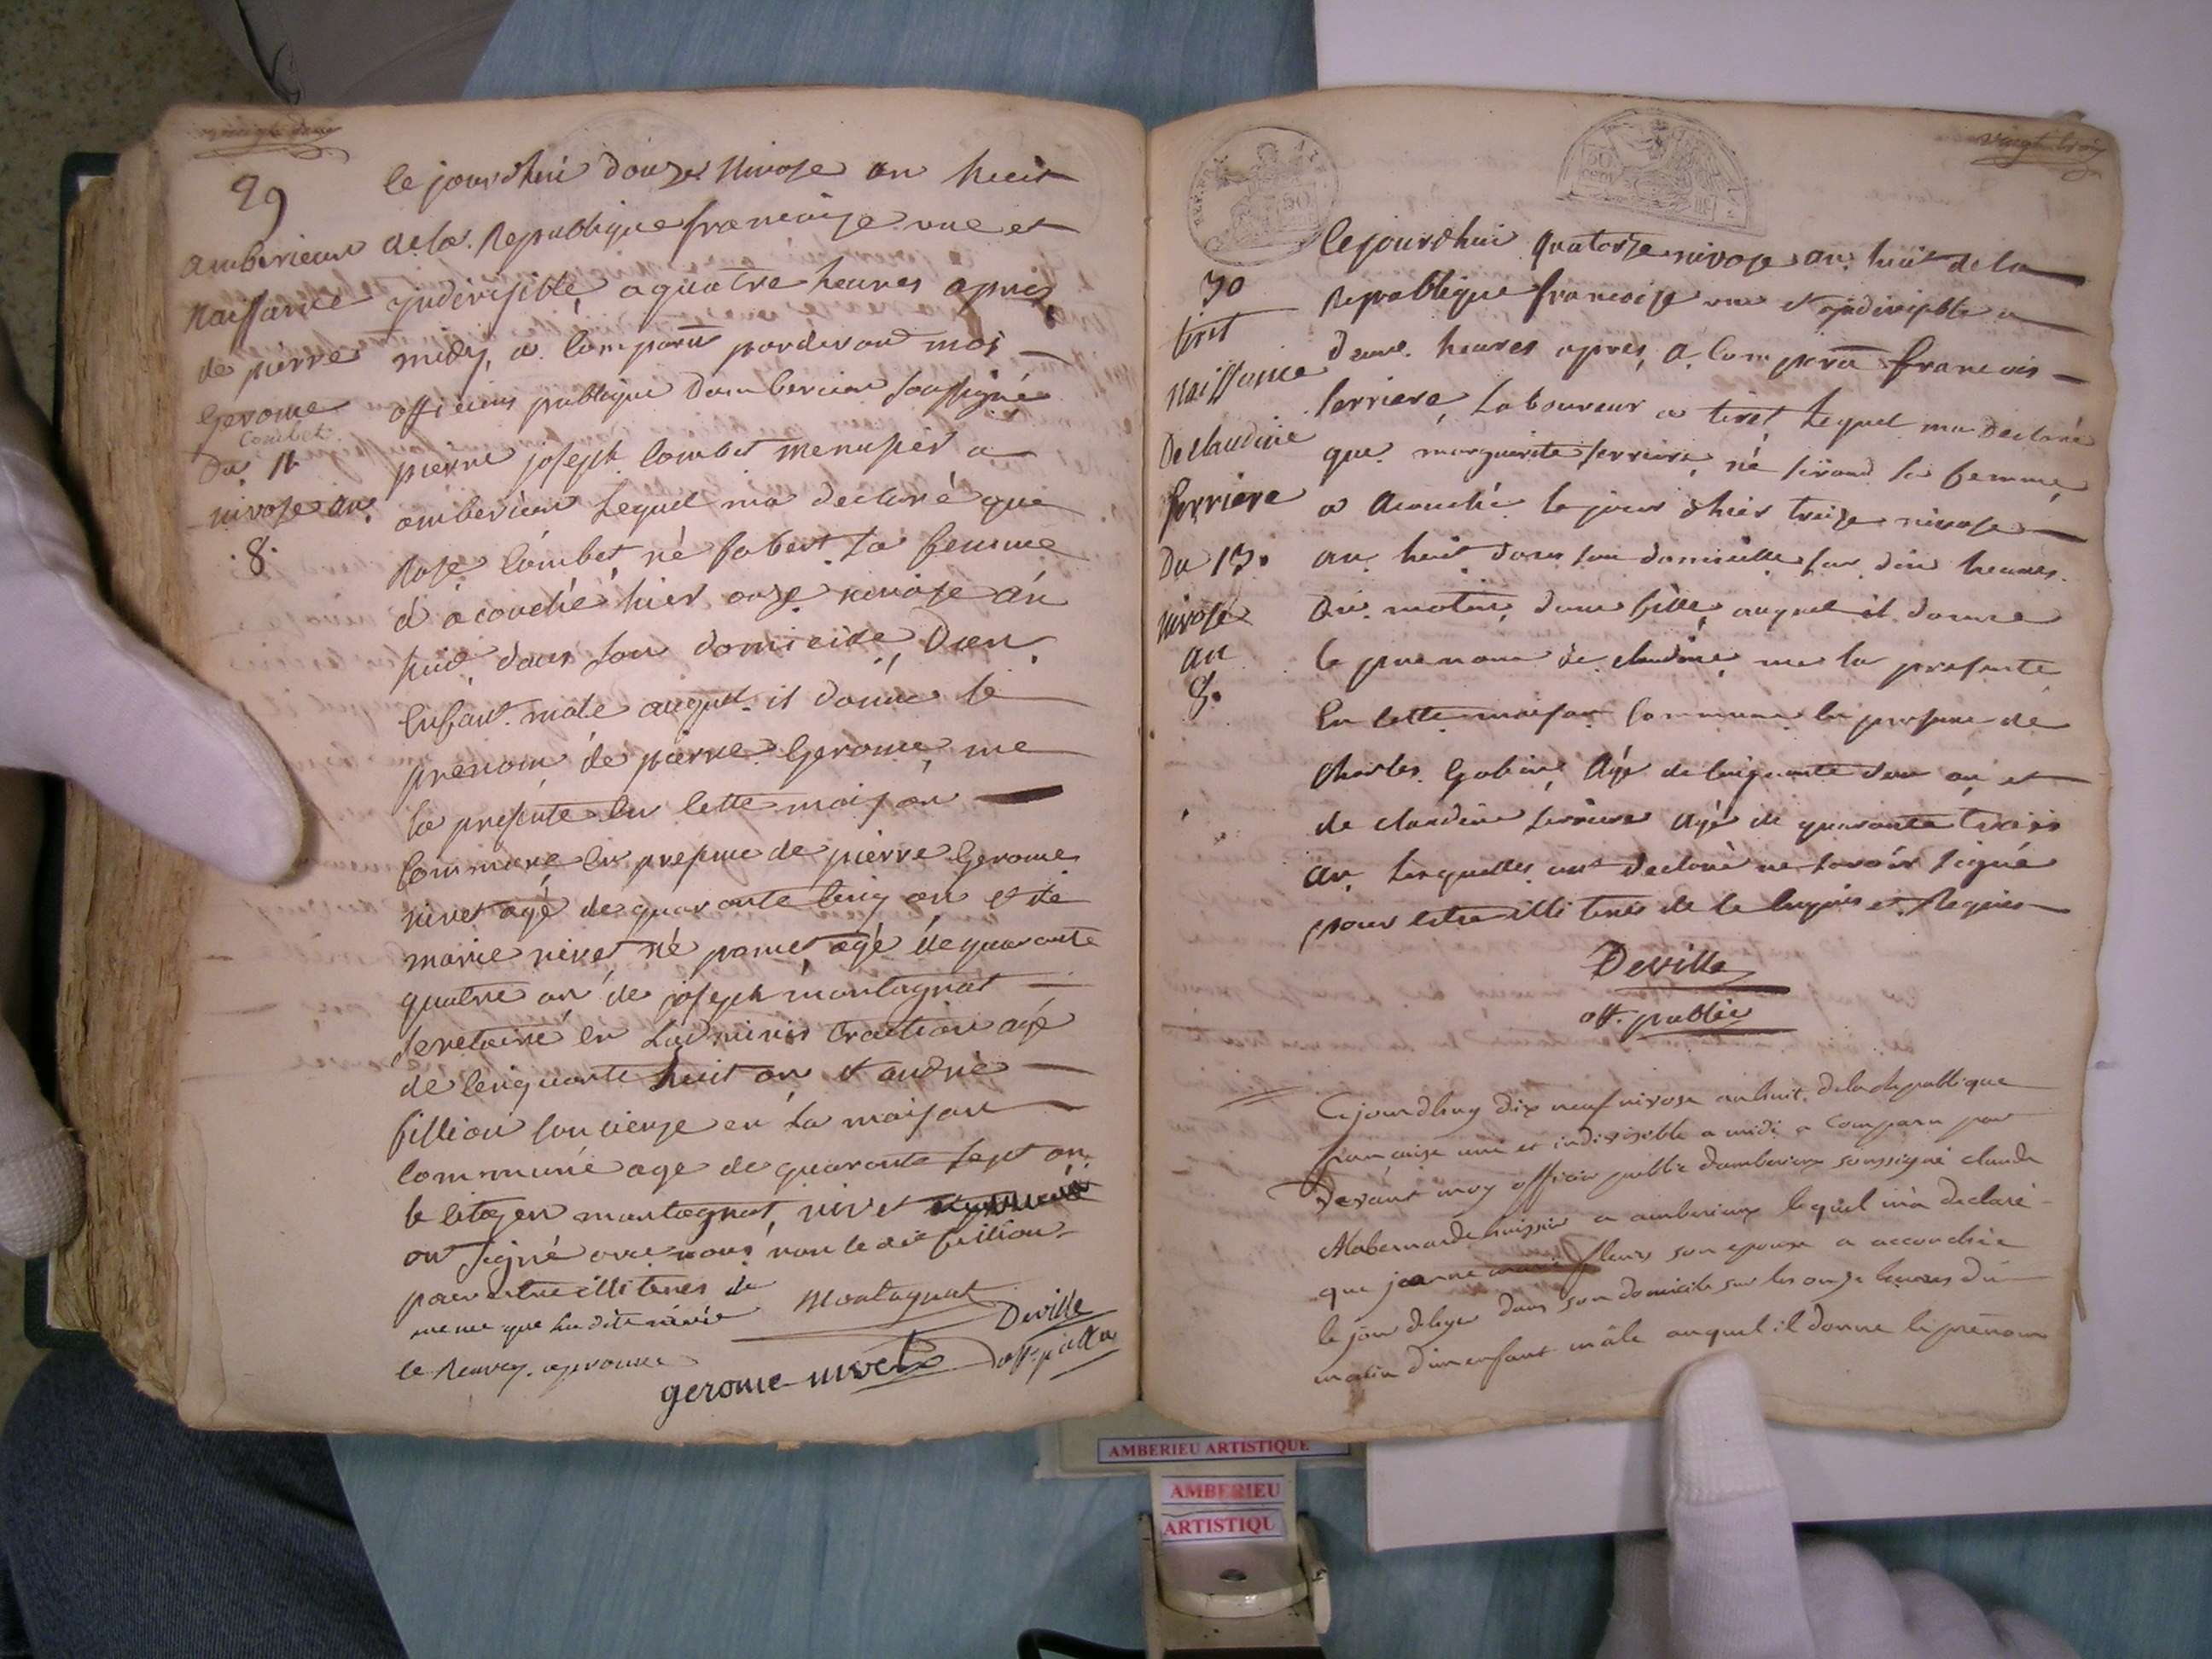 vingt deux
29
amberieux
naissance
de pierre
Gerome
Combet
Du 11
nivose an
8.
le jourdhui douze Nivose an huit
de la Republique francoise une et
yndivisible, a quatre heures apres
midy, a Comparu pardevand moi
officiers publique Damberieux soussigné
pierre joseph Combet menusier a
amberieux Lequel ma declaré que
Rose Combet, né fabert. La femme
a acouché hier onze nivose an
huit dans son domicile, D'un
Enfant male auquel il donne le
prenom de pierre Gerome, me
la presente En Cette maison
Commune En presence de pierre Gerome
nivet agé de quarante Cinq an et de
marie nivet né agé de quarante
quatre an de joseph montagnat
secretaire en Ladministraction agé
de Cinquante huit an et andré
fillion Concierge en La maison
Commune age de quarante sept an
le citoyen montagnat, nivet
on signé avec nous, non le dit fillion
pour estre illiteres de
meme que la dite
Montagnat
Deville
gerome nivet
off. public
vingt trois
30
tiret
Naissance
De Claudine
ferriere
Du 13.
nivose
an
8.
lejourdhui quatorze nivose an huit de la
Republique francoise une et yndivisible a
deux heures apres, a Comparu francois
ferriere, Laboureur a tiret Lequel ma Declaré
que marguerite ferriere né sa femme
a acouché le jour dhier treize nivose
an huit dans son domicille sur dix heures
Du matin, dune fille, auquel il donne
le prenom de Claudine, me la presente
En Cette maison Commune En presence de
Charles Gobin, Agé de Cinquante deux an et
de Claudine ferriere agé de quarante trois
an, Lesquelles ont declaré ne savoir signé
pour estre illiteres de Ce Enquis et Requis
Deville
off. public
Cejourdhuy dix neuf nivose an huit de la Republique
francaise une et indivisible a midi a Comparu par
Devant moy officier public damberieux soussigné claude
huissier a amberieux lequel m'a declaré
que jeanne son epouse a accouchée
le jour dans son domicile sur les onze heures du
matin d'un enfant mâle auquel il donne le prénom
AMBERIEU ARTISTIQUE
AMBERIEU
ARTISTIQU